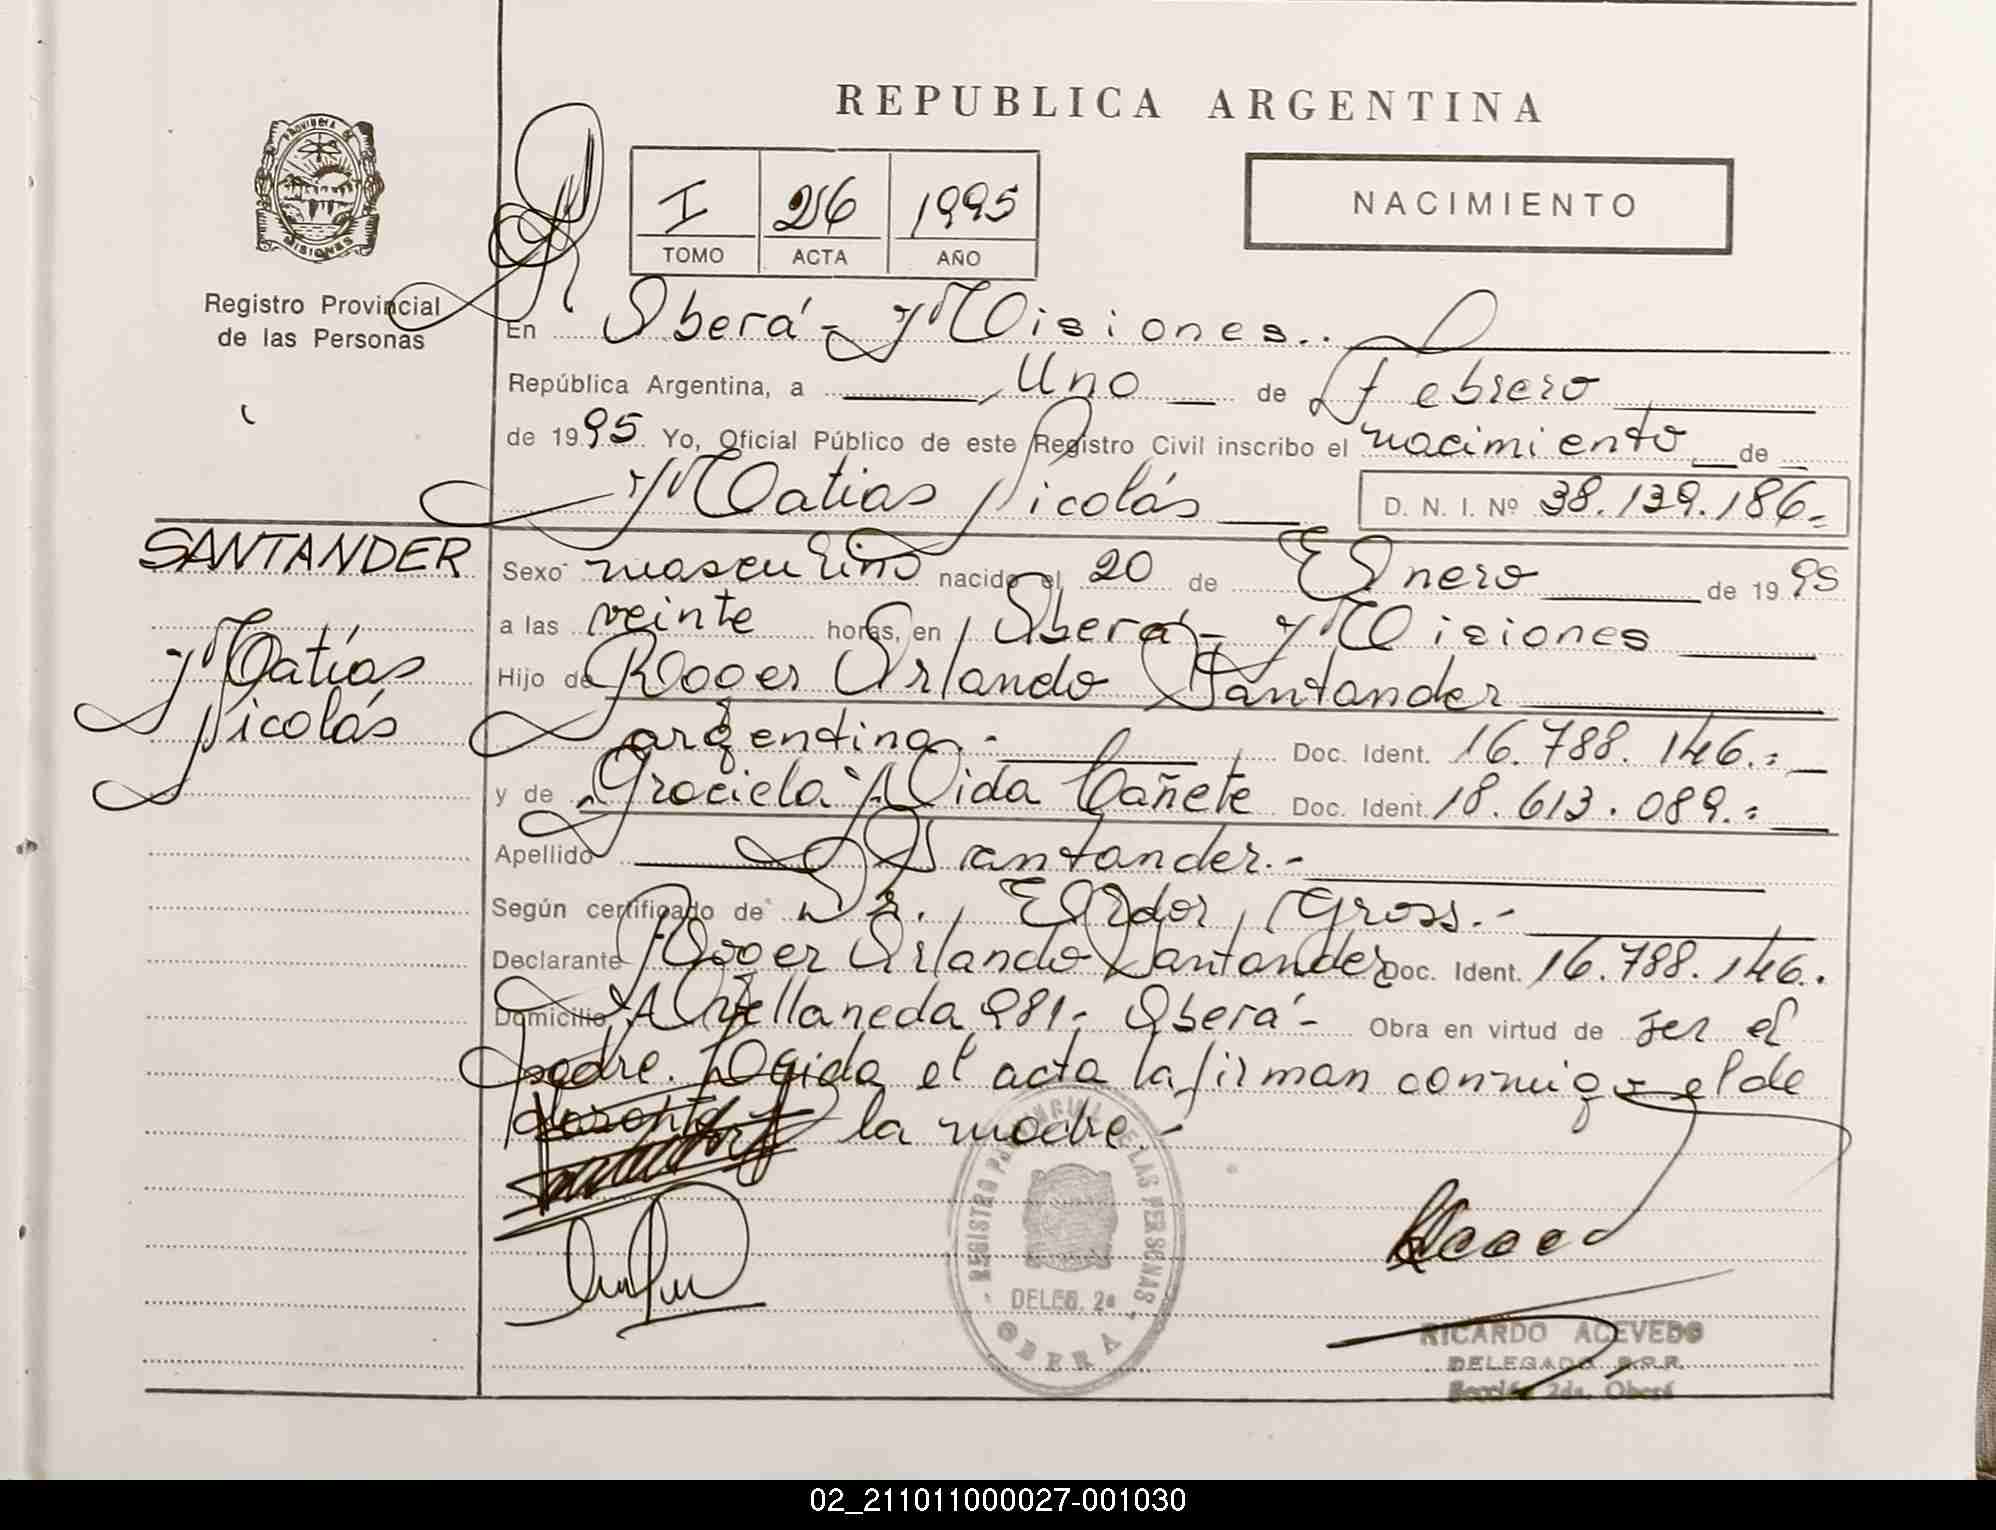 REPUBLICA ARGENTINA
PROVINCIA DE
MISIONES
Registro Provincial
de las Personas
I 216 1995
TOMO ACTA AÑO
NACIMIENTO
En Oberá - Misiones..
República Argentina, a Uno de Febrero
de 1995 Yo, Oficial Público de este Registro Civil inscribo el nacimiento de
Matias Nicolás D. N. I. Nº 38.139.186.-
SANTANDER
Matías
Nicolás
Sexo masculino nacido el 20 de Enero de 1995
a las veinte horas, en Oberá - Misiones
Hijo de Roger Orlando Santander
argentino.- Doc. Ident. 16.788.146.-
y de Graciela Alida Cañete Doc. Ident. 18.613.089.-
Apellido Santander.-
Según certificado de Dr. Eldor Gross.-
Declarante Roger Orlando Santander Doc. Ident. 16.788.146.
Domicilio Avellaneda 981.- Oberá - Obra en virtud de ser el
padre. Leída el acta la firman conmigo el de
la madre.-
REGISTRO PROVINCIAL DE LAS PERSONAS
DELEG. 2ª
OBERA
RICARDO ACEVEDO
DELEGADO R.P.P.
Sección 2da. Oberá
02_211011000027-001030